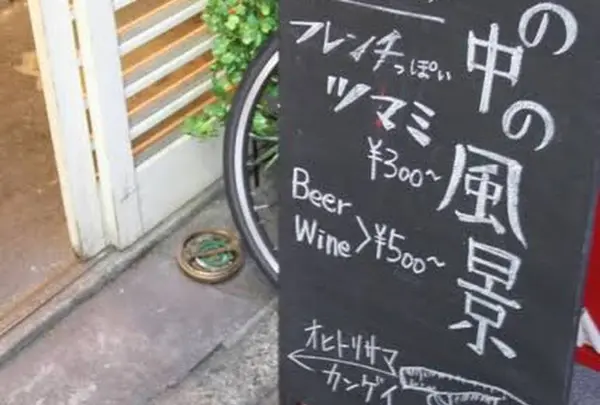 の中の風景
フレンチっぽい
ツマミ
¥300~
Beer
Wine >¥500~
オヒトリサマ
カンゲイ